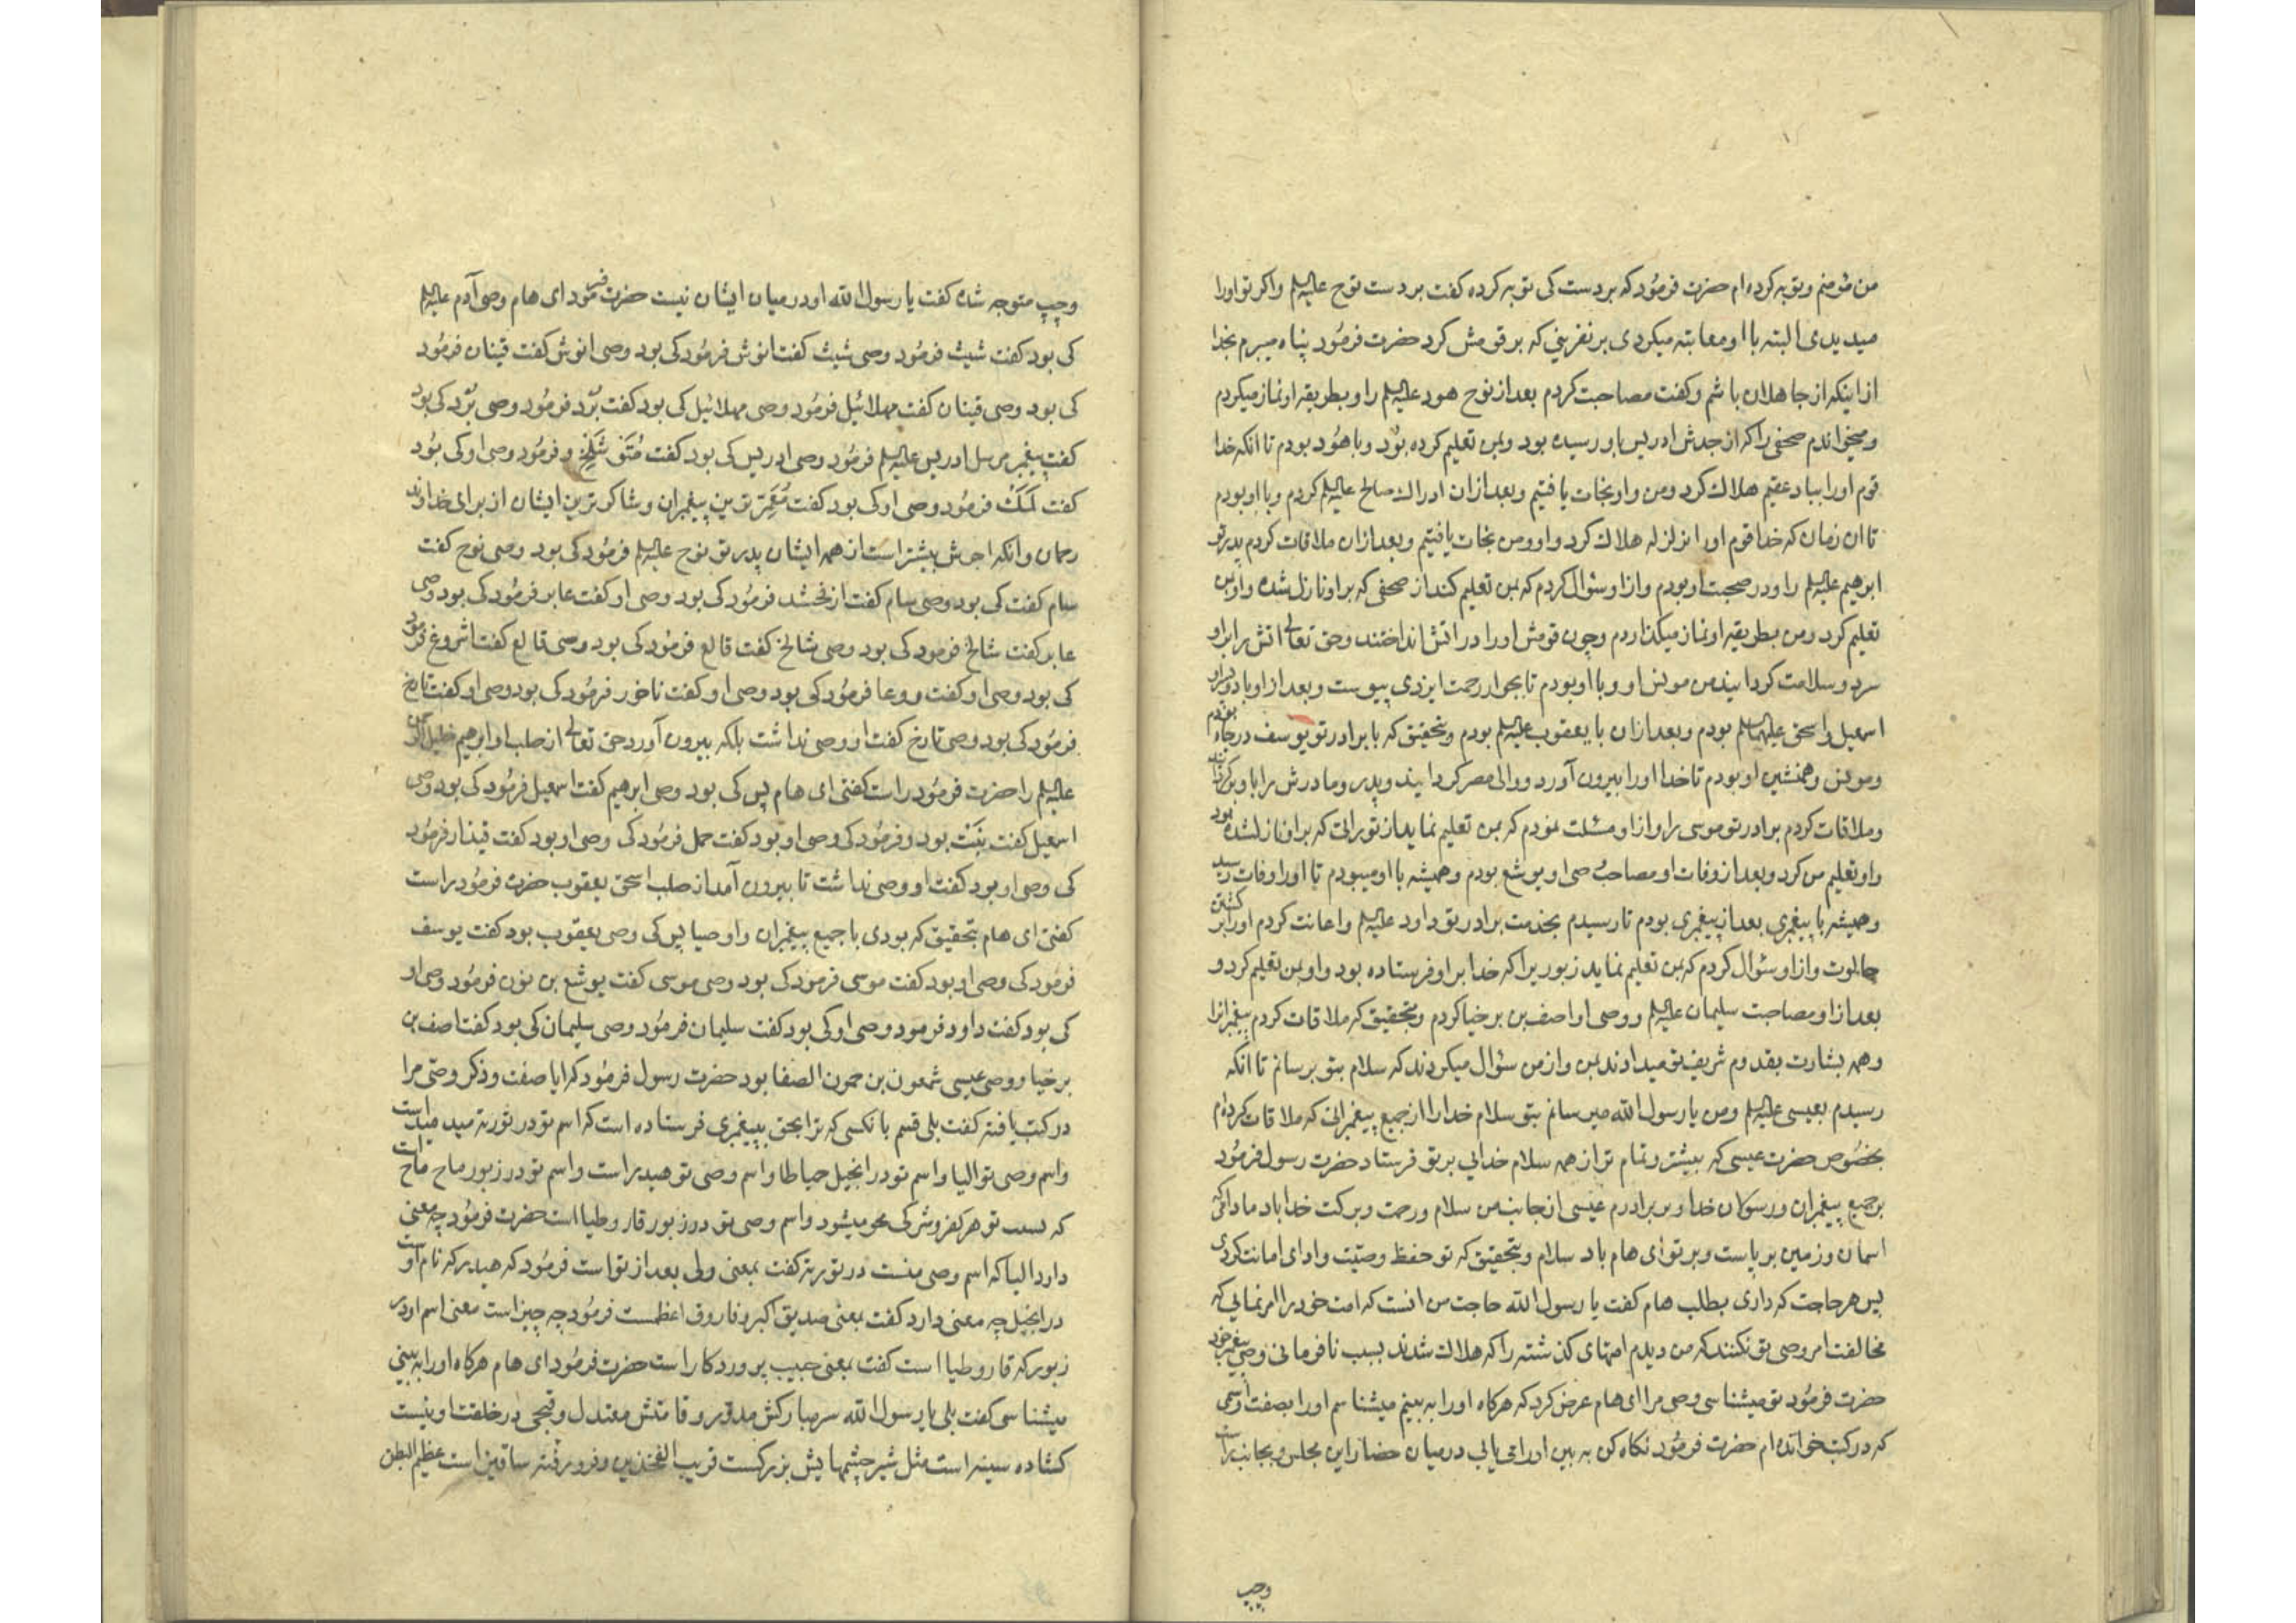 من مؤمنم و توبه کرده‌ام حضرت فرمُود که بر دست کی توبه کرده کفت بر دست نوح علیه‌السلم واکر تو او را
میدیدی البته با او معاتبه میکردی بر نفرینی که بر قومش کرد حضرت فرمُود پناه میبرم بخدا
از اینکه از جاهلان باشم وکفت مصاحبت کردم بعد از نوح هود علیه‌السلم را و بطریقه او نماز میکردم
و میخواندم صحفی را که از جدش ادریس باو رسیده بود و بمن تعلیم کرده بوُد و با هوُد بودم تا انکه خدا
قوم او را بباد عقیم هلاک کرد و من و او نجات یافتیم و بعد از ان ادراک صالح علیه‌السلم کردم و با او بودم
تا ان زمان که خدا قوم او را بزلزله هلاک کرد و او و من نجات یافتیم و بعد ازان ملاقات کردم پدر تو
ابرهیم علیه‌السلم را و در صحبت او بودم و از او سؤال کردم که بمن تعلیم کند از صحفی که بر او نازل شده و او بمن
تعلیم کرد و من بطریقه او نماز میکذاردم و چون قومش او را در اتش انداختند و حق تعالی اتش را بر او
سرد و سلامت کردانید من مونس او و با او بودم تا بجوار رحمت ایزدی پیوست و بعد از او با دو فرزند او
اسمعیل و اسحق علیهماالسلم بودم و بعد ازان با یعقوب علیه‌السلم بودم و بتحقیق که با برادر تو یوسف در چاه بودم
و مونس و همنشین او بودم تا خدا او را بیرون آورد و والی مصر کردانید و پدر و مادرش را باو برکرداند
و ملاقات کردم برادر تو موسی را و از او مسئلت نمودم که بمن تعلیم نماید از توراتی که بر او نازلشده بود
و او تعلیم من کرد و بعد از وفات او مصاحب وصی او یوشع بودم و همیشه با او میبودم تا او را وفات رسید
و همیشه با پیغمبری بعد از پیغمبری بودم تا رسیدم بخدمت برادر تو داود علیه‌السلم و اعانت کردم او را بر کشتن
جالوت و از او سئوال کردم که بمن تعلیم نماید زبوریرا که خدا بر او فرستاده بود و او بمن تعلیم کرد و
بعد از او مصاحبت سلیمان علیه‌السلم و وصی او اصف بن برخیا کردم و بتحقیق که ملاقات کردم پیغمبرانرا
و همه بشارت بقدوم شریف تو میدادند بمن و از من سئوال میکردند که سلام بتو برسانم تا انکه
رسیدم بعیسی علیه‌السلم و من یا رسول الله میرسانم بتو سلام خدا را از جمیع پیغمبرانی که ملاقات کرده‌ام
بخصُوص حضرت عیسی که بیشتر و تمام تر از همه سلام خدایی بر تو فرستاد حضرت رسول فرمُود
بر جمیع پیغمبران و رسوُلان خدا و بر برادرم عیسی از جانب من سلام و رحمت و برکت خدا باد مادامی که
اسمان و زمین بر پاست و بر تو ای هام باد سلام و بتحقیق که تو حفظ وصیّت و ادای امانت کردی
پس هر حاجت که داری بطلب هام کفت یا رسول الله حاجت من انست که امت خود را امر نمائی که
مخالفت امر وصی تو نکنند که من دیدم امتهای کذشته را که هلاک شدند بسبب نافرمانی وصی پیغمبر خود
حضرت فرمُود تو میشناسی وصی مرا ای هام عرض کرد که هرکاه او را به بینم میشناسم او را بصفت و اسمی
که در کتب خوانده‌ام حضرت فرمُود نکاه کن به بین او را می‌یابی در میان حضار این مجلس و بجانب راست
وچپ
وچپ متوجه شده کفت یا رسول الله او در میان ایشان نیست حضرت فرمُود ای هام وصی آدم علیه‌السلم
کی بود کفت شیث فرمُود وصی شیث کفت انوش فرمُود کی بود وصی انوش کفت قینان فرمُود
کی بود وصی قینان کفت مهلائیل فرمُود وصی مهلائیل کی بود کفت بُرد فرمُود وصی بُرد کی بود
کفت پیغمبر مرسل ادریس علیه‌السلم فرمُود وصی ادریس کی بود کفت مُتَوَشلخ و فرمُود وصی او کی بوُد
کفت لَمَک فرمُود وصی او کی بود کفت مُعَمَّرترین پیغمبران و شاکرترین ایشان از برای خداوند
رحمان و انکه اجرش بیشتر است از همه ایشان پدر تو نوح علیه‌السلم فرمُود کی بود وصی نوح کفت
سام کفت کی بود وصی سام کفت ارفخشد فرمُود کی بود وصی او کفت عابر فرمُود کی بود وصی
عابر کفت شالخ فرمود کی بود وصی شالخ کفت قالع فرمُود کی بود وصی قالع کفت اشروغ فرمُود
کی بود وصی او کفت وروعا فرمُود کی بود وصی او کفت ناخور فرمُود کی بود وصی او کفت تارخ
فرمُود کی بود وصی تارخ کفت او وصی نداشت بلکه بیرون آورد حق تعالی از صلب او ابرهیم خلیل الرحمن
علیه‌السلم را حضرت فرمُود راست کفتی ای هام پس کی بود وصی ابرهیم کفت اسمعیل فرمُود کی بود وصی
اسمعیل کفت نبَت بود و فرمُود کی وصی او بود کفت حمل فرمُود کی وصی او بود کفت قیذار فرمُود
کی وصی او بود کفت او وصی نداشت تا بیرون آمد از صلب اسحق یعقوب حضرت فرمُود راست
کفتی ای هام بتحقیق که بودی با جمیع پیغمبران و اوصیا پس کی وصی یعقوب بود کفت یوسف
فرمُود کی وصی او بود کفت موسی فرمود کی بود وصی موسی کفت یوشع بن نوُن فرمُود وصی او
کی بود کفت داود فرمود وصی او کی بود کفت سلیمان فرمُود وصی سلیمان کی بود کفت اصف بن
برخیا و وصی عیسی شمعون بن حمون الصفا بود حضرت رسول فرمُود که ایا صفت و ذکر وصیّ مرا
در کتب یافته کفت بلی قسم بانکسی که ترا بحق بپیغمبری فرستاده است که اسم تو در توریة مید مید است
و اسم وصی تو الیا و اسم تو در انجیل حیاطا و اسم وصی تو هیدبر است و اسم تو در زبور ماح ماح است
که بسبب تو هر کفر و شرکی محو میشود و اسم وصی تو در زبور قاروطیا است حضرت فرمُود چه معنی
دارد الیا که اسم وصی منست در توریة کفت بمعنی ولی بعد از تو است فرمُود که هیدبر که نام او است
در انجیل چه معنی دارد کفت بمعنی صدیق اکبر و فاروق اعظمست فرمُود چه چیز است معنی اسم او در
زبور که قاروطیا است کفت بمعنی حبیب پروردکار است حضرت فرمُود ای هام هرکاه او را به بینی
میشناسی کفت بلی یا رسول الله سر مبارکش مدوّر و قامتش معتدل و قبحی در خلقت او نیست
کشاده سینه است مثل شیر چشمهایش بزرکست قریب الفخذین و فرورفته ساقین است عظیم البطن